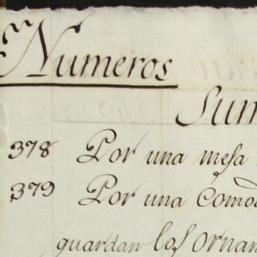 Numeros
Sum
378 Por una mesa
379 Por una Como
guardan los ornam